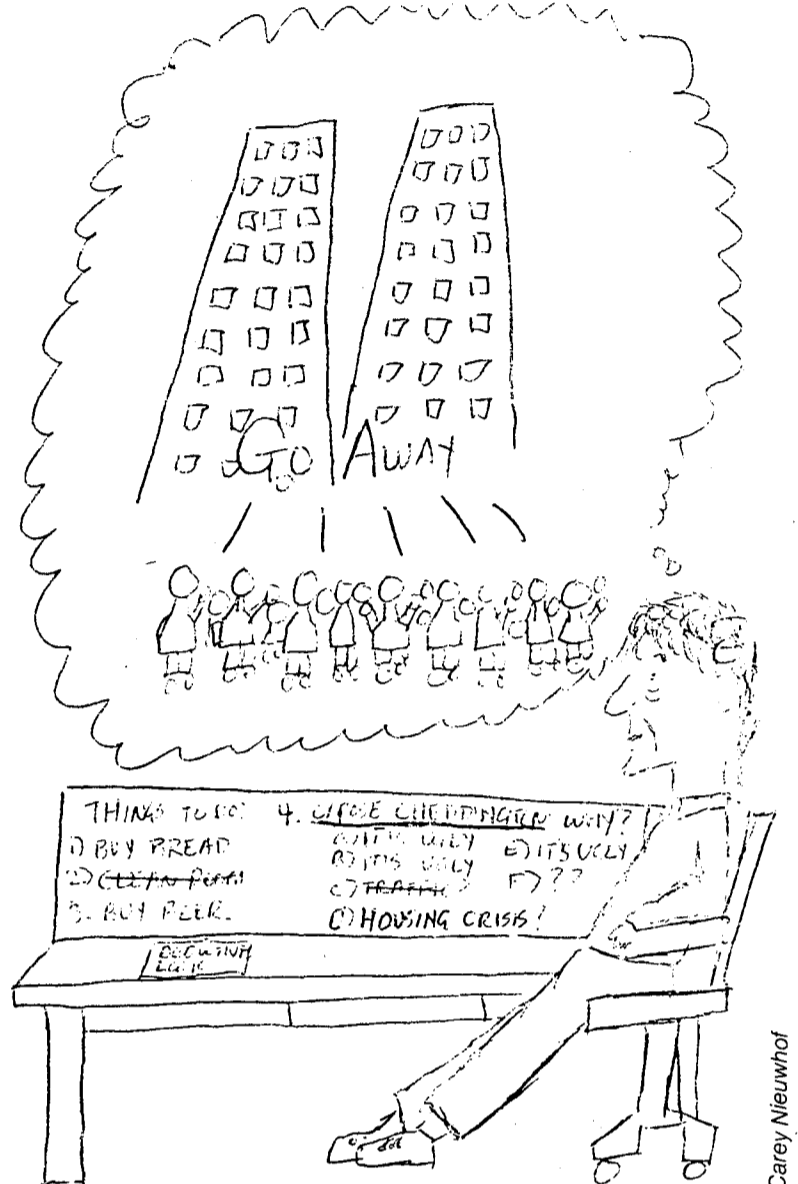 GO AWAY
THINGS TO DO:
1) BUY BREAD
3. BUY BEER.
4. CHEDDINGTON WHY?
A) IT IS UGLY
B) IT IS UGLY
C) TRAFFIC
C) HOUSING CRISIS!
E) IT'S UGLY
F) ??
Carey Nieuwhof